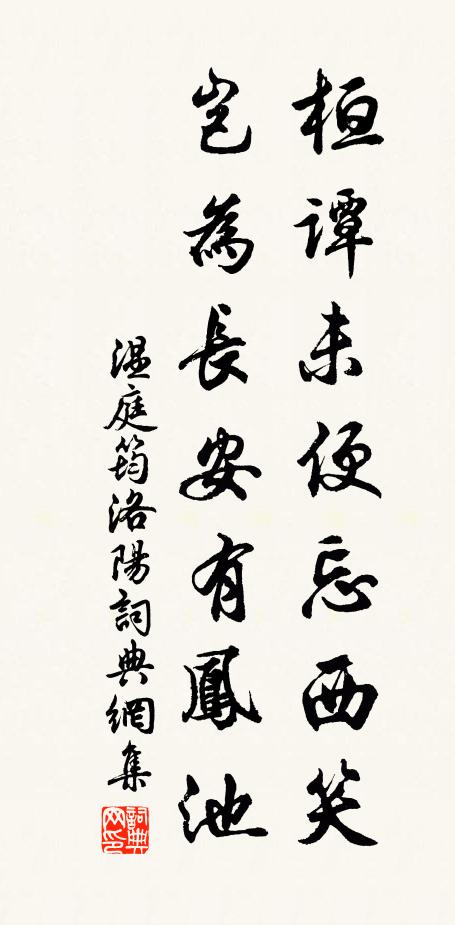 桓譚未便忘西笑
豈為長安有鳳池
温庭筠洛陽詞典網集
詞典网印